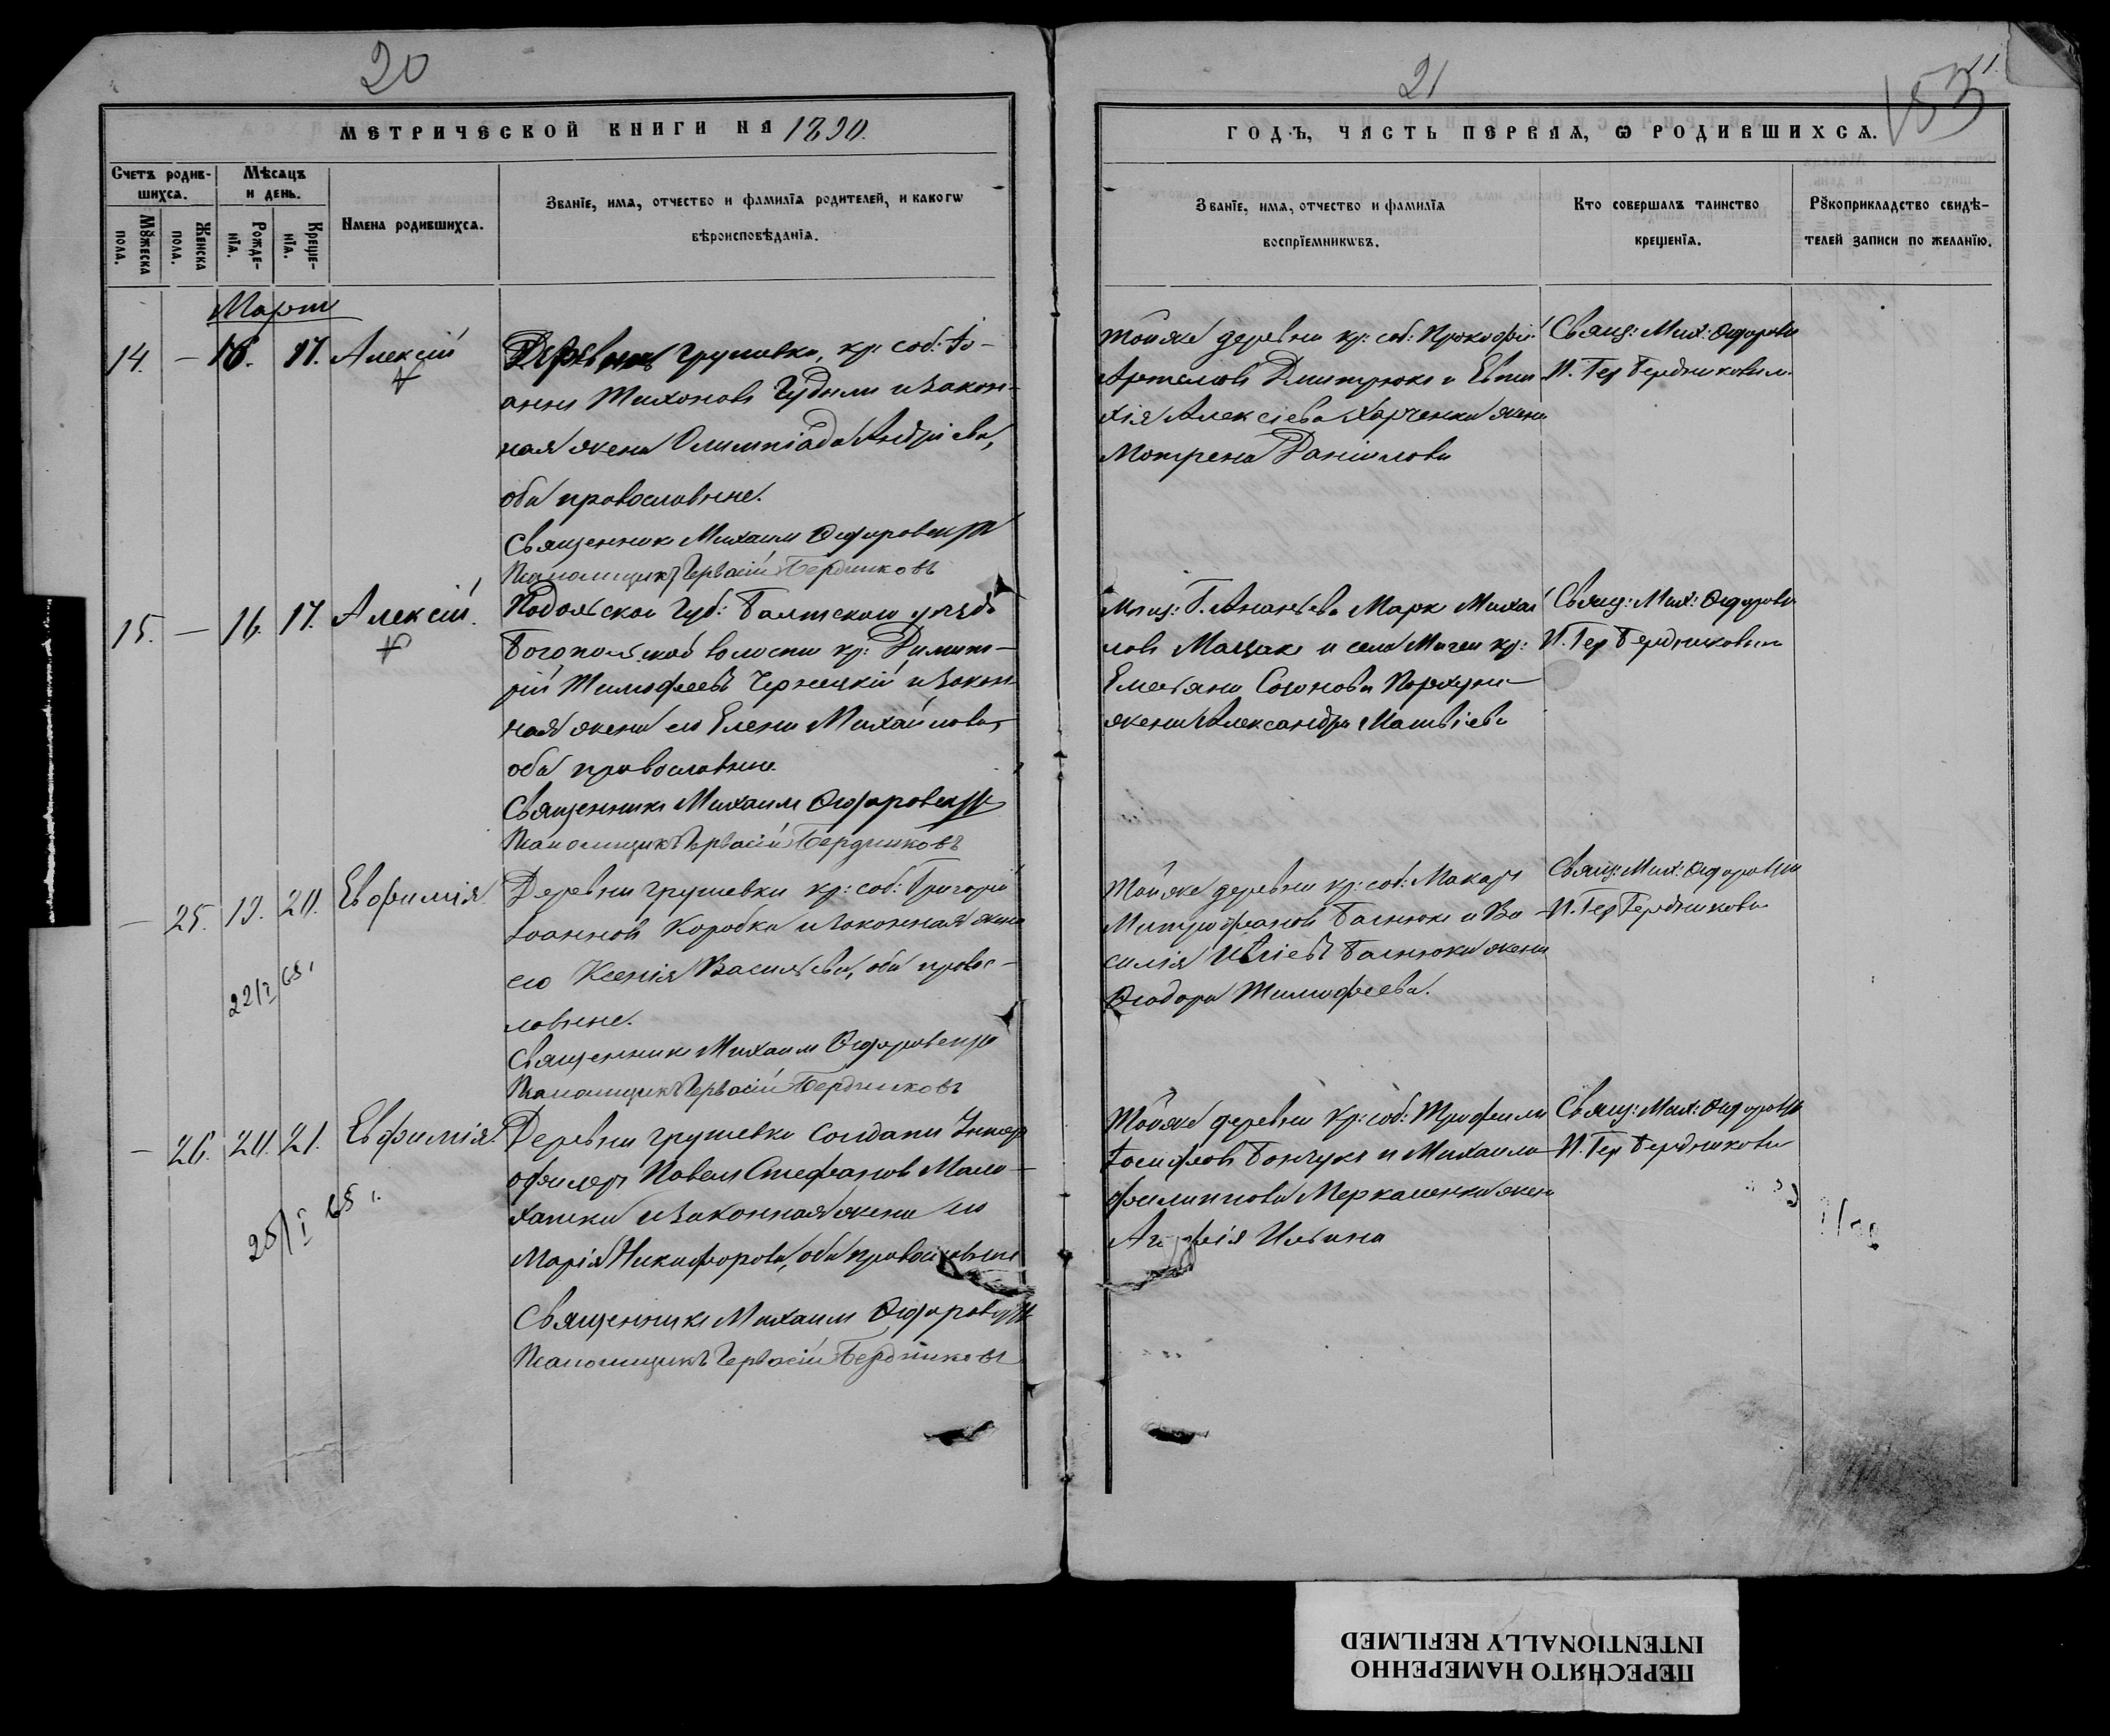 20
МЕТРИЧЕСКОЙ КНИГИ НА 1890.
Счетъ родившихся.
Мѣсяцъ и день.
Мꙋжеска пола.
Женска пола.
Рожденїя.
Крещенїя.
Имена родившихся.
Званїе, имя, отчество и фамилїя родителей, и какогѡ
вѣроисповѣданїя.
Март
14. – 16. 17. Алексій
Деревни Грушевки, кр: соб: Іо-
анн Тихоновъ Гудыли и закон-
ная жена Олимпіада Андріева,
оба православные.
Священникъ Михаилъ
Псаломщикъ Гервасій Бердниковъ
15. – 16. 17. Алексій.
Подольской губ: Балтскаго уѣзда
Богопольской волости кр: Димит-
рій Тимофеевъ Чернецкій и закон-
ная жена его Елена Михайлова,
оба православные
Священникъ Михаилъ
Псаломщикъ Гервасій Бердниковъ
– 25. 19. 20. Евфимія.
22/I 65 г.
Деревни Грушевки кр: соб: Григорій
Іоаннов Коробка и законная жена
его Ксенія Васильева, оба правос-
лавные.
Священникъ Михаилъ
Псаломщикъ Гервасій Бердниковъ
– 26. 20. 21. Евфимія.
25/I 65 г.
Деревни Грушевки Солдатъ Унтер
офицеръ Павелъ Стефанов Мала-
хатка и законная жена его
Марія Никифорова, оба православные
Священникъ Михаилъ
Псаломщикъ Гервасій Бердниковъ
21
153
11.
ГОДЪ, ЧАСТЬ ПЕРВАЯ, Ѡ РОДИВШИХСЯ.
Званїе, имя, отчество и фамилїя
воспрїемникѡвъ.
Кто совершалъ таинство
крещенїя.
Рꙋкоприкладство свидѣ-
телей записи по желанїю.
Той же деревни кр: соб: Прокофій
Артемовъ Дмитрюкъ и Евти-
хія Алексіева Харченка жена
Мотрена Даніилова
Свящ: Мих:
П. Гер Бердниковым
Мѣщ: Г. Ананьева Марк Михаи
ловъ Мацакъ и села Мигеи кр:
Емельяна Созонова Порхуна
жена Александра Матвіева
Свящ: Мих:
П. Гер Бердниковым
Той же деревни кр: соб: Макаръ
Митрофанов Баснюкъ и Ва-
силія Иліевъ Баснюка жена
Ѳеодора Тимофеева.
Свящ: Мих:
П. Гер Бердниковъ
Той же деревни кр: соб: Трофимъ
Іосифов Бончукъ и Михаила
Филиппова Меркаленка жена
Агафія Ильина
Свящ: Мих:
П. Гер Бердниковъ
ПЕРЕСНЯТО НАМЕРЕННО
INTENTIONALLY REFILMED